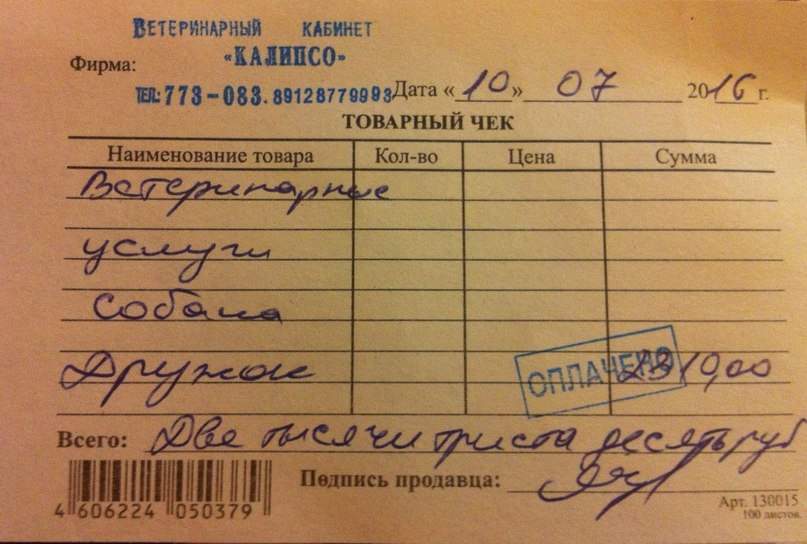 ВЕТЕРИНАРНЫЙ КАБИНЕТ
Фирма: «КАЛИПСО»
ТЕЛ: 773-083. 89128779993 Дата «10» 07 2016 г.
ТОВАРНЫЙ ЧЕК
Наименование товара Кол-во Цена Сумма
Ветеринарные
услуги
собака
Дружок ОПЛАЧЕНО 2310,00
Всего: Две тысячи триста десять руб
Подпись продавца:
4 606224 050379
Арт. 130015
100 листов.